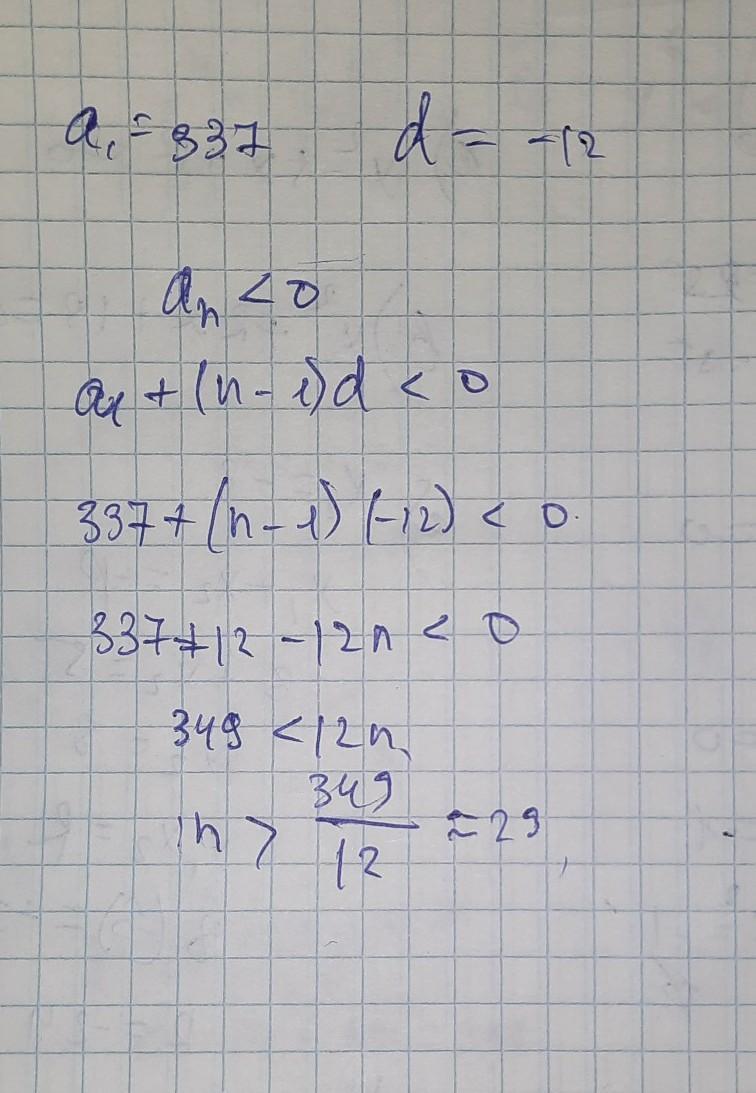 a₁ = 337 d = -12
aₙ < 0
a₁ + (n - 1)d < 0
337 + (n - 1) (-12) < 0
337 + 12 - 12n < 0
349 < 12n
n > 349/12 ≈ 29